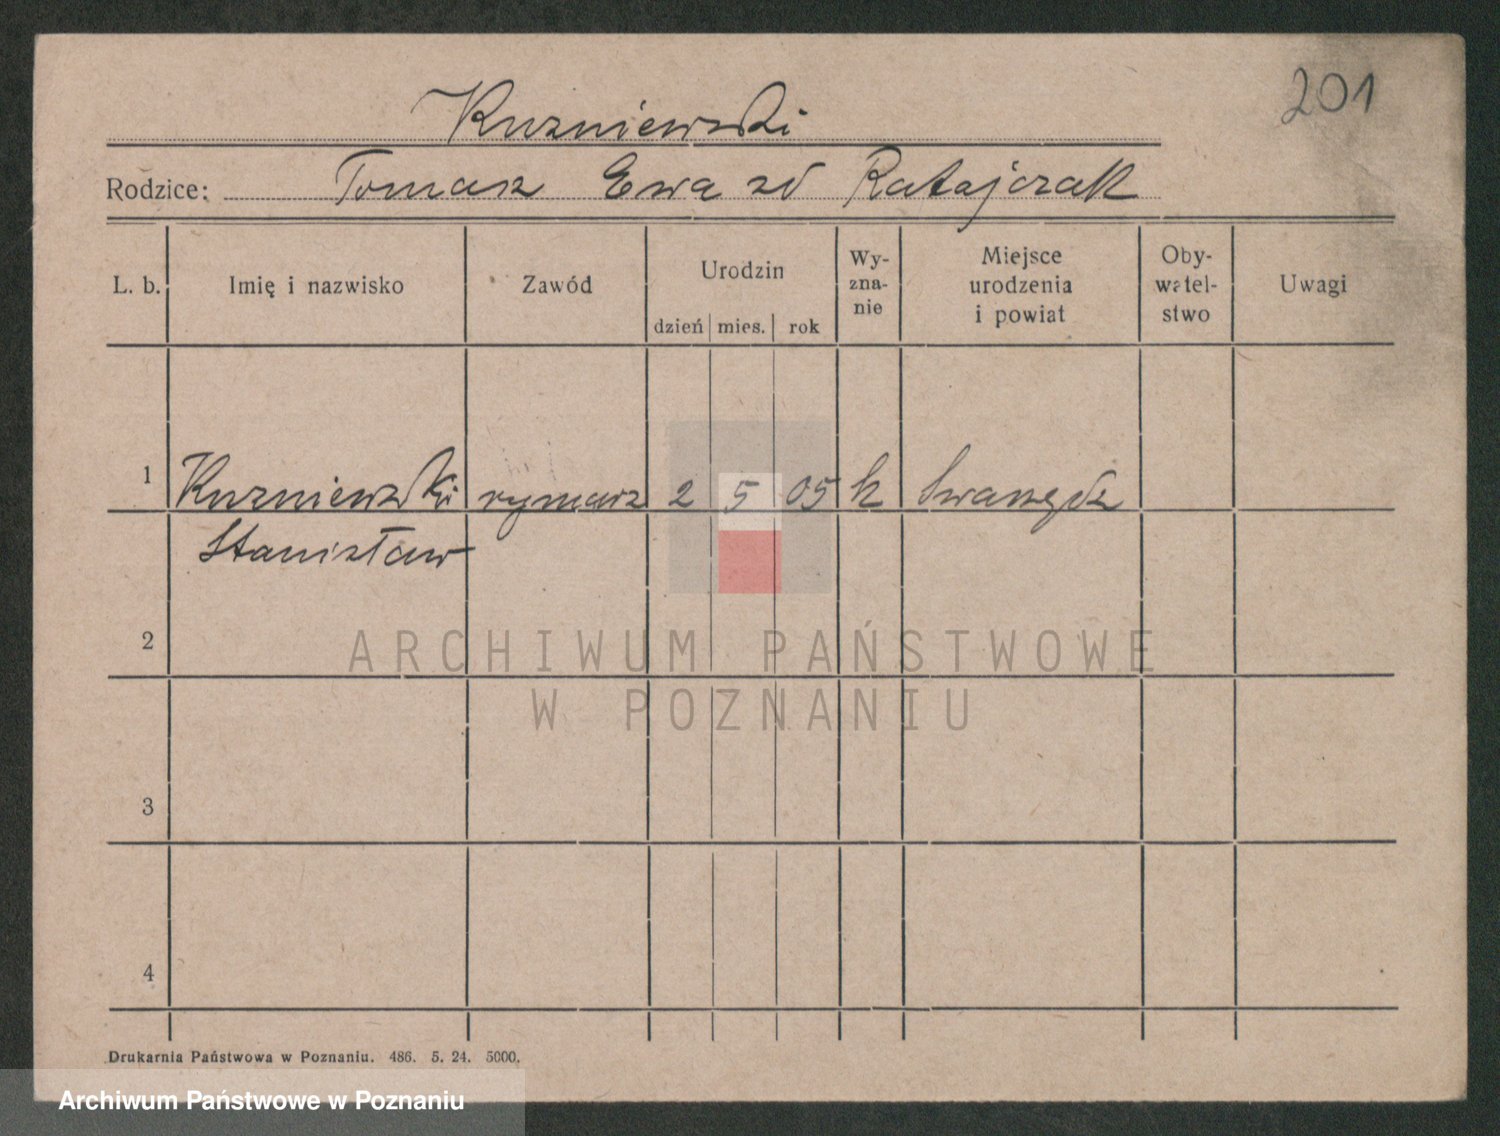 201
Kuzniewski
Rodzice: Tomasz Ewa zd Ratajczak
L. b. Imię i nazwisko Zawód Urodzin dzień mies. rok Wy-znanie Miejsce urodzenia i powiat Oby-watel-stwo Uwagi
1 Kuzniewski rymarz 2 5 05 k Swarzędz
Stanisław
2
ARCHIWUM PAŃSTWOWE
W POZNANIU
3
4
Drukarnia Państwowa w Poznaniu. 486. 5. 24. 5000.
Archiwum Państwowe w Poznaniu